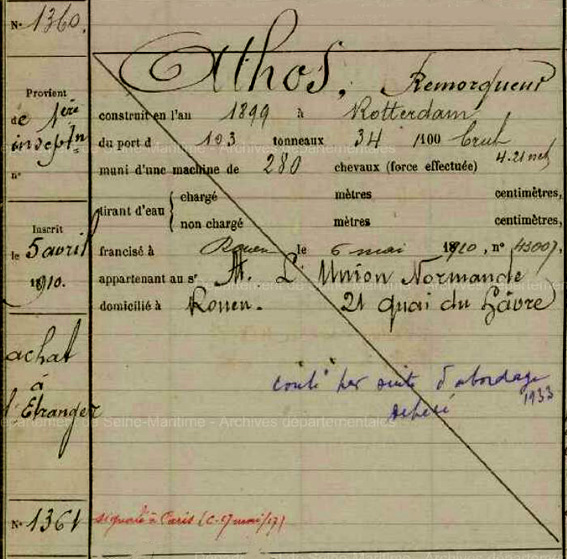 N° 1360.
Athos, Remorqueur
Provient
de 1ère
inscptn
n°
construit en l'an 1899 à Rotterdam
du port d 103 tonneaux 34/100 brut
4.21 net
muni d'une machine de 280 chevaux (force effectuée)
tirant d'eau { chargé mètres centimètres,
non chargé mètres centimètres,
Inscrit
le 5 avril
1910.
francisé à Rouen le 6 mai 1910, n° 43007,
appartenant au sr A. L'Union Normande
domicilié à Rouen. 21 quai du Hâvre
achat
à
l'Etranger
coulé par suite d'abordage
1933
N° 1361
signalé à Paris (C. 17 mai/17)
Département de Seine-Maritime - Archives départementales